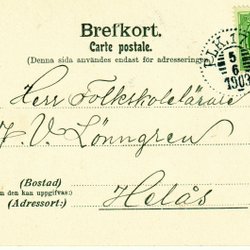 Brefkort.
Carte postale.
(Denna sida användes endast för adressering
PLK.1
5
6
1903
Herr Folkskolelärare
J. V. Lönngren
(Bostad)
m den kan uppgifvas:)
(Adressort:)
Helås